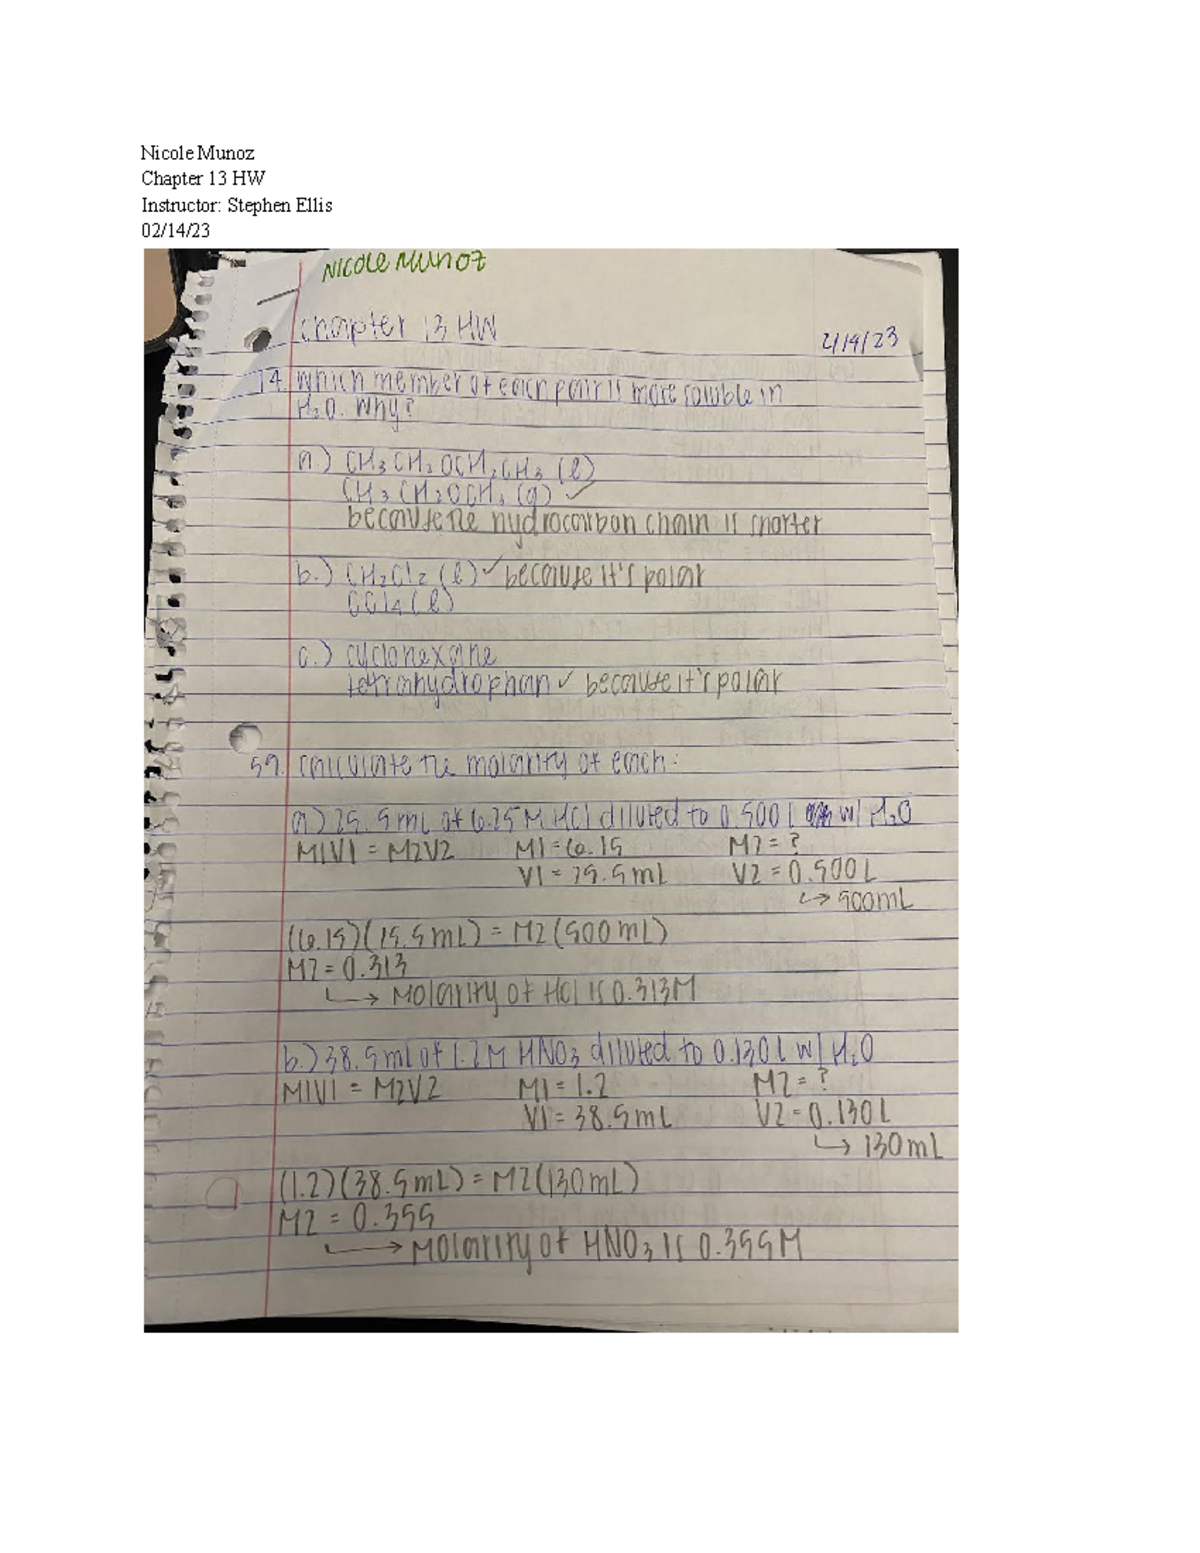 Nicole Munoz
Chapter 13 HW
Instructor: Stephen Ellis
02/14/23
Nicole Munoz
Chapter 13 HW
2/14/23
14. Which member of each pair is more soluble in
H2O. Why?
a.) CH3CH2OCH2CH3 (l)
CH3CH2OCH3 (g) ✓
because the hydrocarbon chain is shorter
b.) CH2Cl2 (l) ✓ because it's polar
CCl4 (l)
c.) cyclohexane
tetrahydrophan ✓ because it's polar
59. Calculate the molarity of each:
a.) 25.5 mL of 6.25 M HCl diluted to 0.500 L w/ H2O
M1V1 = M2V2 M1 = 6.15 M2 = ?
V1 = 25.5 mL V2 = 0.500 L
↳ 500 mL
(6.15)(25.5 mL) = M2(500 mL)
M2 = 0.313
↳ Molarity of HCl is 0.313 M
b.) 38.5 mL of 1.2 M HNO3 diluted to 0.130 L w/ H2O
M1V1 = M2V2 M1 = 1.2 M2 = ?
V1 = 38.5 mL V2 = 0.130 L
↳ 130 mL
(1.2)(38.5 mL) = M2(130 mL)
M2 = 0.355
↳ Molarity of HNO3 is 0.355 M